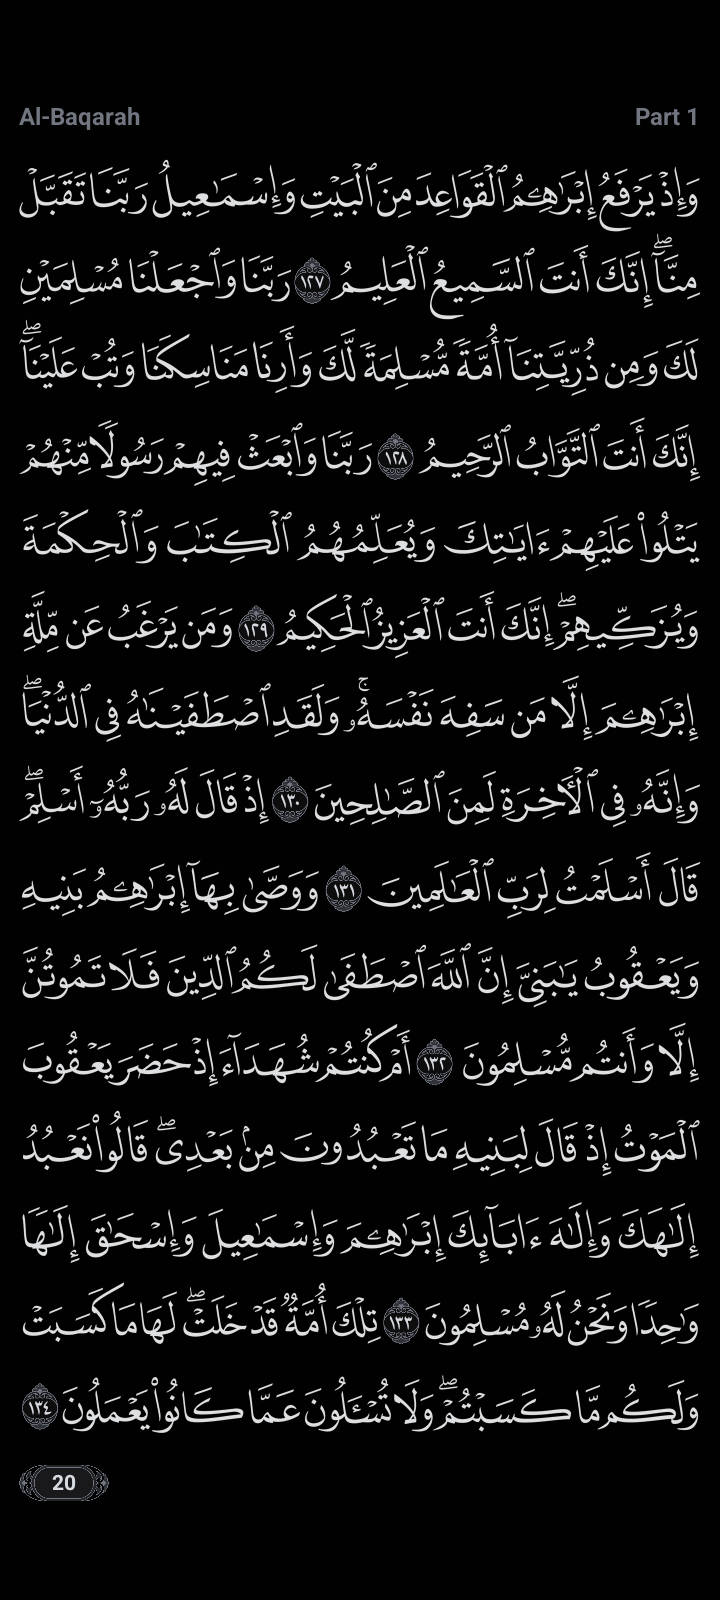 Al-Baqarah Part 1
وَإِذْ يَرْفَعُ إِبْرَٰهِـۧمُ ٱلْقَوَاعِدَ مِنَ ٱلْبَيْتِ وَإِسْمَـٰعِيلُ رَبَّنَا تَقَبَّلْ
مِنَّآ ۖ إِنَّكَ أَنتَ ٱلسَّمِيعُ ٱلْعَلِيمُ ١٢٧ رَبَّنَا وَٱجْعَلْنَا مُسْلِمَيْنِ
لَكَ وَمِن ذُرِّيَّتِنَآ أُمَّةً مُّسْلِمَةً لَّكَ وَأَرِنَا مَنَاسِكَنَا وَتُبْ عَلَيْنَآ ۖ
إِنَّكَ أَنتَ ٱلتَّوَّابُ ٱلرَّحِيمُ ١٢٨ رَبَّنَا وَٱبْعَثْ فِيهِمْ رَسُولًا مِّنْهُمْ
يَتْلُوا۟ عَلَيْهِمْ ءَايَـٰتِكَ وَيُعَلِّمُهُمُ ٱلْكِتَـٰبَ وَٱلْحِكْمَةَ
وَيُزَكِّيهِمْ ۖ إِنَّكَ أَنتَ ٱلْعَزِيزُ ٱلْحَكِيمُ ١٢٩ وَمَن يَرْغَبُ عَن مِّلَّةِ
إِبْرَٰهِـۧمَ إِلَّا مَن سَفِهَ نَفْسَهُۥ ۚ وَلَقَدِ ٱصْطَفَيْنَـٰهُ فِى ٱلدُّنْيَا ۖ
وَإِنَّهُۥ فِى ٱلْـَٔاخِرَةِ لَمِنَ ٱلصَّـٰلِحِينَ ١٣٠ إِذْ قَالَ لَهُۥ رَبُّهُۥٓ أَسْلِمْ ۖ
قَالَ أَسْلَمْتُ لِرَبِّ ٱلْعَـٰلَمِينَ ١٣١ وَوَصَّىٰ بِهَآ إِبْرَٰهِـۧمُ بَنِيهِ
وَيَعْقُوبُ يَـٰبَنِىَّ إِنَّ ٱللَّهَ ٱصْطَفَىٰ لَكُمُ ٱلدِّينَ فَلَا تَمُوتُنَّ
إِلَّا وَأَنتُم مُّسْلِمُونَ ١٣٢ أَمْ كُنتُمْ شُهَدَآءَ إِذْ حَضَرَ يَعْقُوبَ
ٱلْمَوْتُ إِذْ قَالَ لِبَنِيهِ مَا تَعْبُدُونَ مِنۢ بَعْدِى ۖ قَالُوا۟ نَعْبُدُ
إِلَـٰهَكَ وَإِلَـٰهَ ءَابَآئِكَ إِبْرَٰهِـۧمَ وَإِسْمَـٰعِيلَ وَإِسْحَـٰقَ إِلَـٰهًا
وَٰحِدًا وَنَحْنُ لَهُۥ مُسْلِمُونَ ١٣٣ تِلْكَ أُمَّةٌ قَدْ خَلَتْ ۖ لَهَا مَا كَسَبَتْ
وَلَكُم مَّا كَسَبْتُمْ ۖ وَلَا تُسْـَٔلُونَ عَمَّا كَانُوا۟ يَعْمَلُونَ ١٣٤
20